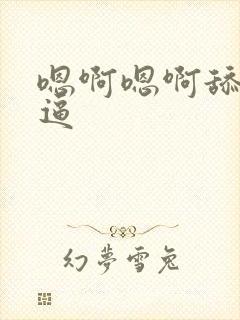 嗯啊嗯啊舔
逼
幻夢雪兔